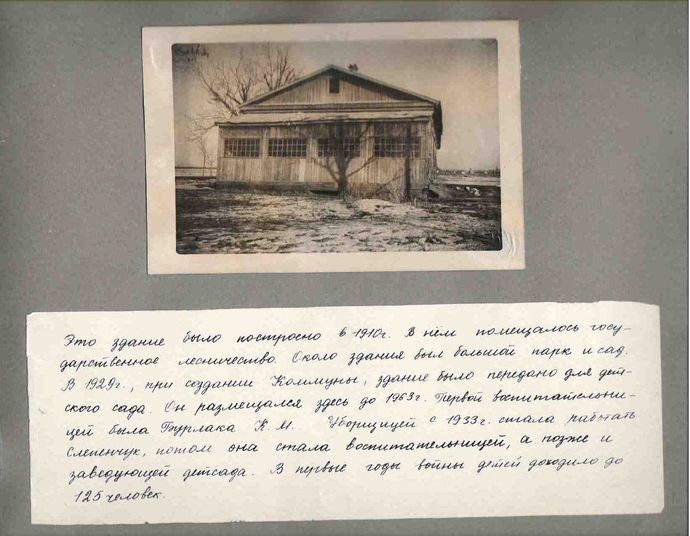 Это здание было построено в 1910г. В нём помещалось госу-
дарственное лесничество. Около здания был большой парк и сад.
В 1929г., при создании Коммуны, здание было передано для дет-
ского сада. Он размещался здесь до 1963г. Первой воспитательни-
цей была Бурлака К.М. Уборщицей с 1933г. стала работать
Слепенчук, потом она стала воспитательницей, а позже и
заведующей детсада. В первые годы войны детей доходило до
125 человек.